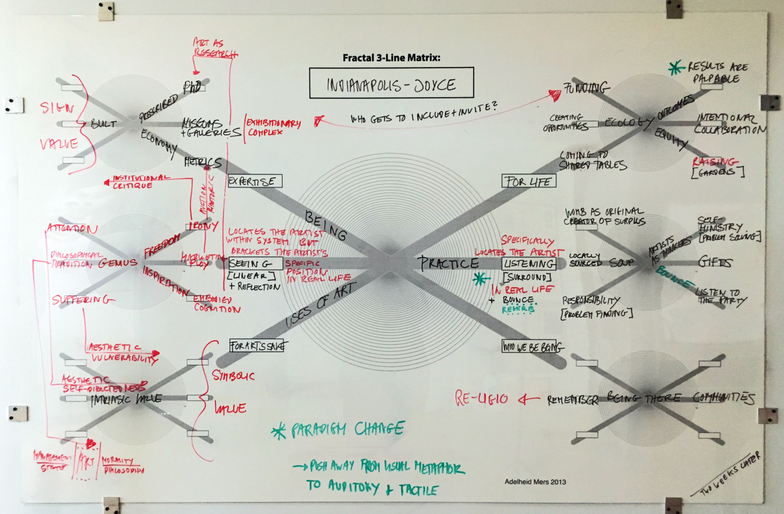 Fractal 3-Line Matrix:
INDIANAPOLIS-JOYCE
ART AS
RESEARCH
PhD
MUSEUMS
+GALLERIES
EXHIBITIONARY
COMPLEX
METRICS
PRESCRIBED
ECONOMY
CULT
SIGN
VALUE
WHO GETS TO INCLUDE + INVITE?
FUNDING
CREATING
OPPORTUNITIES
COMING TO
SHARED TABLES
ECOLOGY
OUTCOMES
EQUITY
RESULTS ARE
PALPABLE
INTENTIONAL
COLLABORATION
RAISING
[GARDENS]
INSTITUTIONAL
CRITIQUE
EXPERTISE
FOR LIFE
BEING
PRACTICE
USES OF ART
ATTENTION
DISPOSITION
GENIUS
SUFFERING
FREEDOM
INSPIRATION
IRONY
PLAY
EMBODIED
COGNITION
LOCATES THE ARTIST
WITHIN SYSTEM, BUT
BRACKETS THE ARTIST'S
SPECIFIC
POSITION
IN REAL LIFE
SEEING
[LINEAR]
+ REFLECTION
SPECIFICALLY
LOCATES THE ARTIST
LISTENING
[SURROUND]
IN REAL LIFE
+ BOUNCE
REVERB
WOMB AS ORIGINAL
CREATOR OF SURPLUS
LOCALLY
SOURCED
SOUP
RESPONSIBILITY
[PROBLEM FINDING]
ARTISTS
AS
BOUNCE
SELF
MINISTRY
[PROBLEM SOLVING]
GIFTS
LISTEN TO
THE PARTY
FOR ART'S SAKE
WHO WE BE BEING
AESTHETIC
VULNERABILITY
AESTHETIC
SELF-DIRECTEDNESS
INTRINSIC VALUE
SYMBOLIC
VALUE
ART
MORALITY
PHILOSOPHY
RE-LIGIO
REMEMBER
BEING THERE
COMMUNITIES
PARADIGM CHANGE
PUSH AWAY FROM USUAL METAPHOR
TO AUDITORY & TACTILE
Adelheid Mers 2013
TWO WEEKS LATER